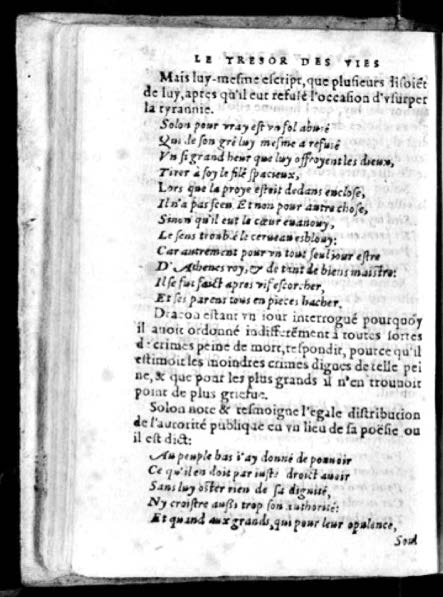 LE TRESOR DES VIES
Mais luy-mesme escript, que plusieurs disoiẽt
de luy, apres qu'il eut refusé l'occasion d'vsurper
la tyrannie.
Solon pour vray est vn fol abusé
Qui de son gré luy mesme a refusé
Vn si grand heur que luy offroyent les dieux,
Tirer à soy le filé spacieux,
Lors que la proye estoit dedans enclose,
Il n'a pas sceu. Et non pour autre chose,
Sinon qu'il eut le cœur euanouy,
Le sens troublé le cerueau esblouy:
Car autrement pour vn tout seul iour estre
D'Athenes roy, & de tãt de biens maistre:
Il se fut faict apres vif escorcher,
Et ses parens tous en pieces hacher.
Dracon estant vn iour interrogué pourquoy
il auoit ordonné indifferẽment à toutes sortes
de crimes peine de mort, respondit, pource qu'il
estimoit les moindres crimes dignes de telle pei
ne, & que pour les plus grands il n'en trouuoit
point de plus griefue.
Solon note & tesmoigne l'egale distribution
de l'autorité publique en vn lieu de sa poësie ou
il est dict:
Au peuple bas i'ay donné de pouuoir
Ce qu'il en doit par iuste droict auoir
Sans luy oster rien de sa dignité,
Ny croistre aussi trop son authorité:
Et quand aux grands, qui pour leur opulence,
Soul